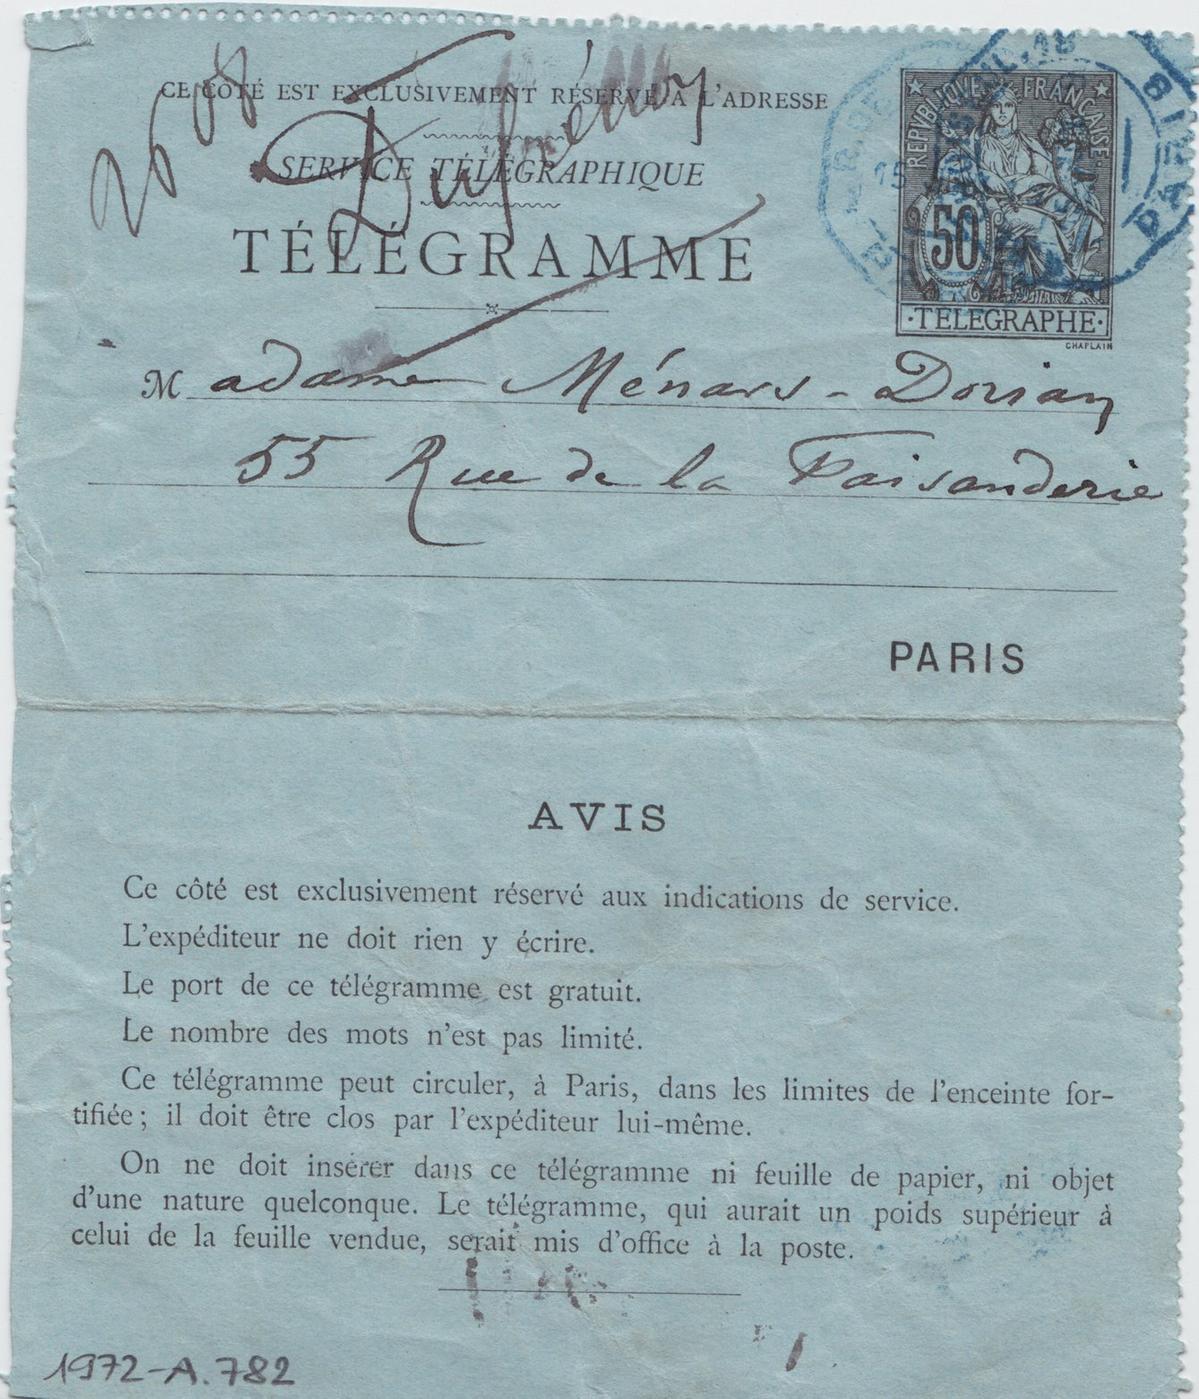 CE CÔTÉ EST EXCLUSIVEMENT RÉSERVÉ A L'ADRESSE
SERVICE TÉLÉGRAPHIQUE
TÉLÉGRAMME
REPVBLIQVE FRANCAISE
50
·TELEGRAPHE·
CHAPLAIN
PARIS
Madame Ménard-Dorian
55 Rue de la Faisanderie
PARIS
AVIS
Ce côté est exclusivement réservé aux indications de service.
L'expéditeur ne doit rien y écrire.
Le port de ce télégramme est gratuit.
Le nombre des mots n'est pas limité.
Ce télégramme peut circuler, à Paris, dans les limites de l'enceinte for-
tifiée; il doit être clos par l'expéditeur lui-même.
On ne doit insérer dans ce télégramme ni feuille de papier, ni objet
d'une nature quelconque. Le télégramme, qui aurait un poids supérieur à
celui de la feuille vendue, serait mis d'office à la poste.
1972-A.782